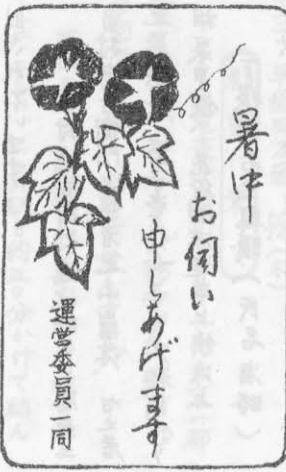 暑中
お伺い
申しあげます
運営委員一同